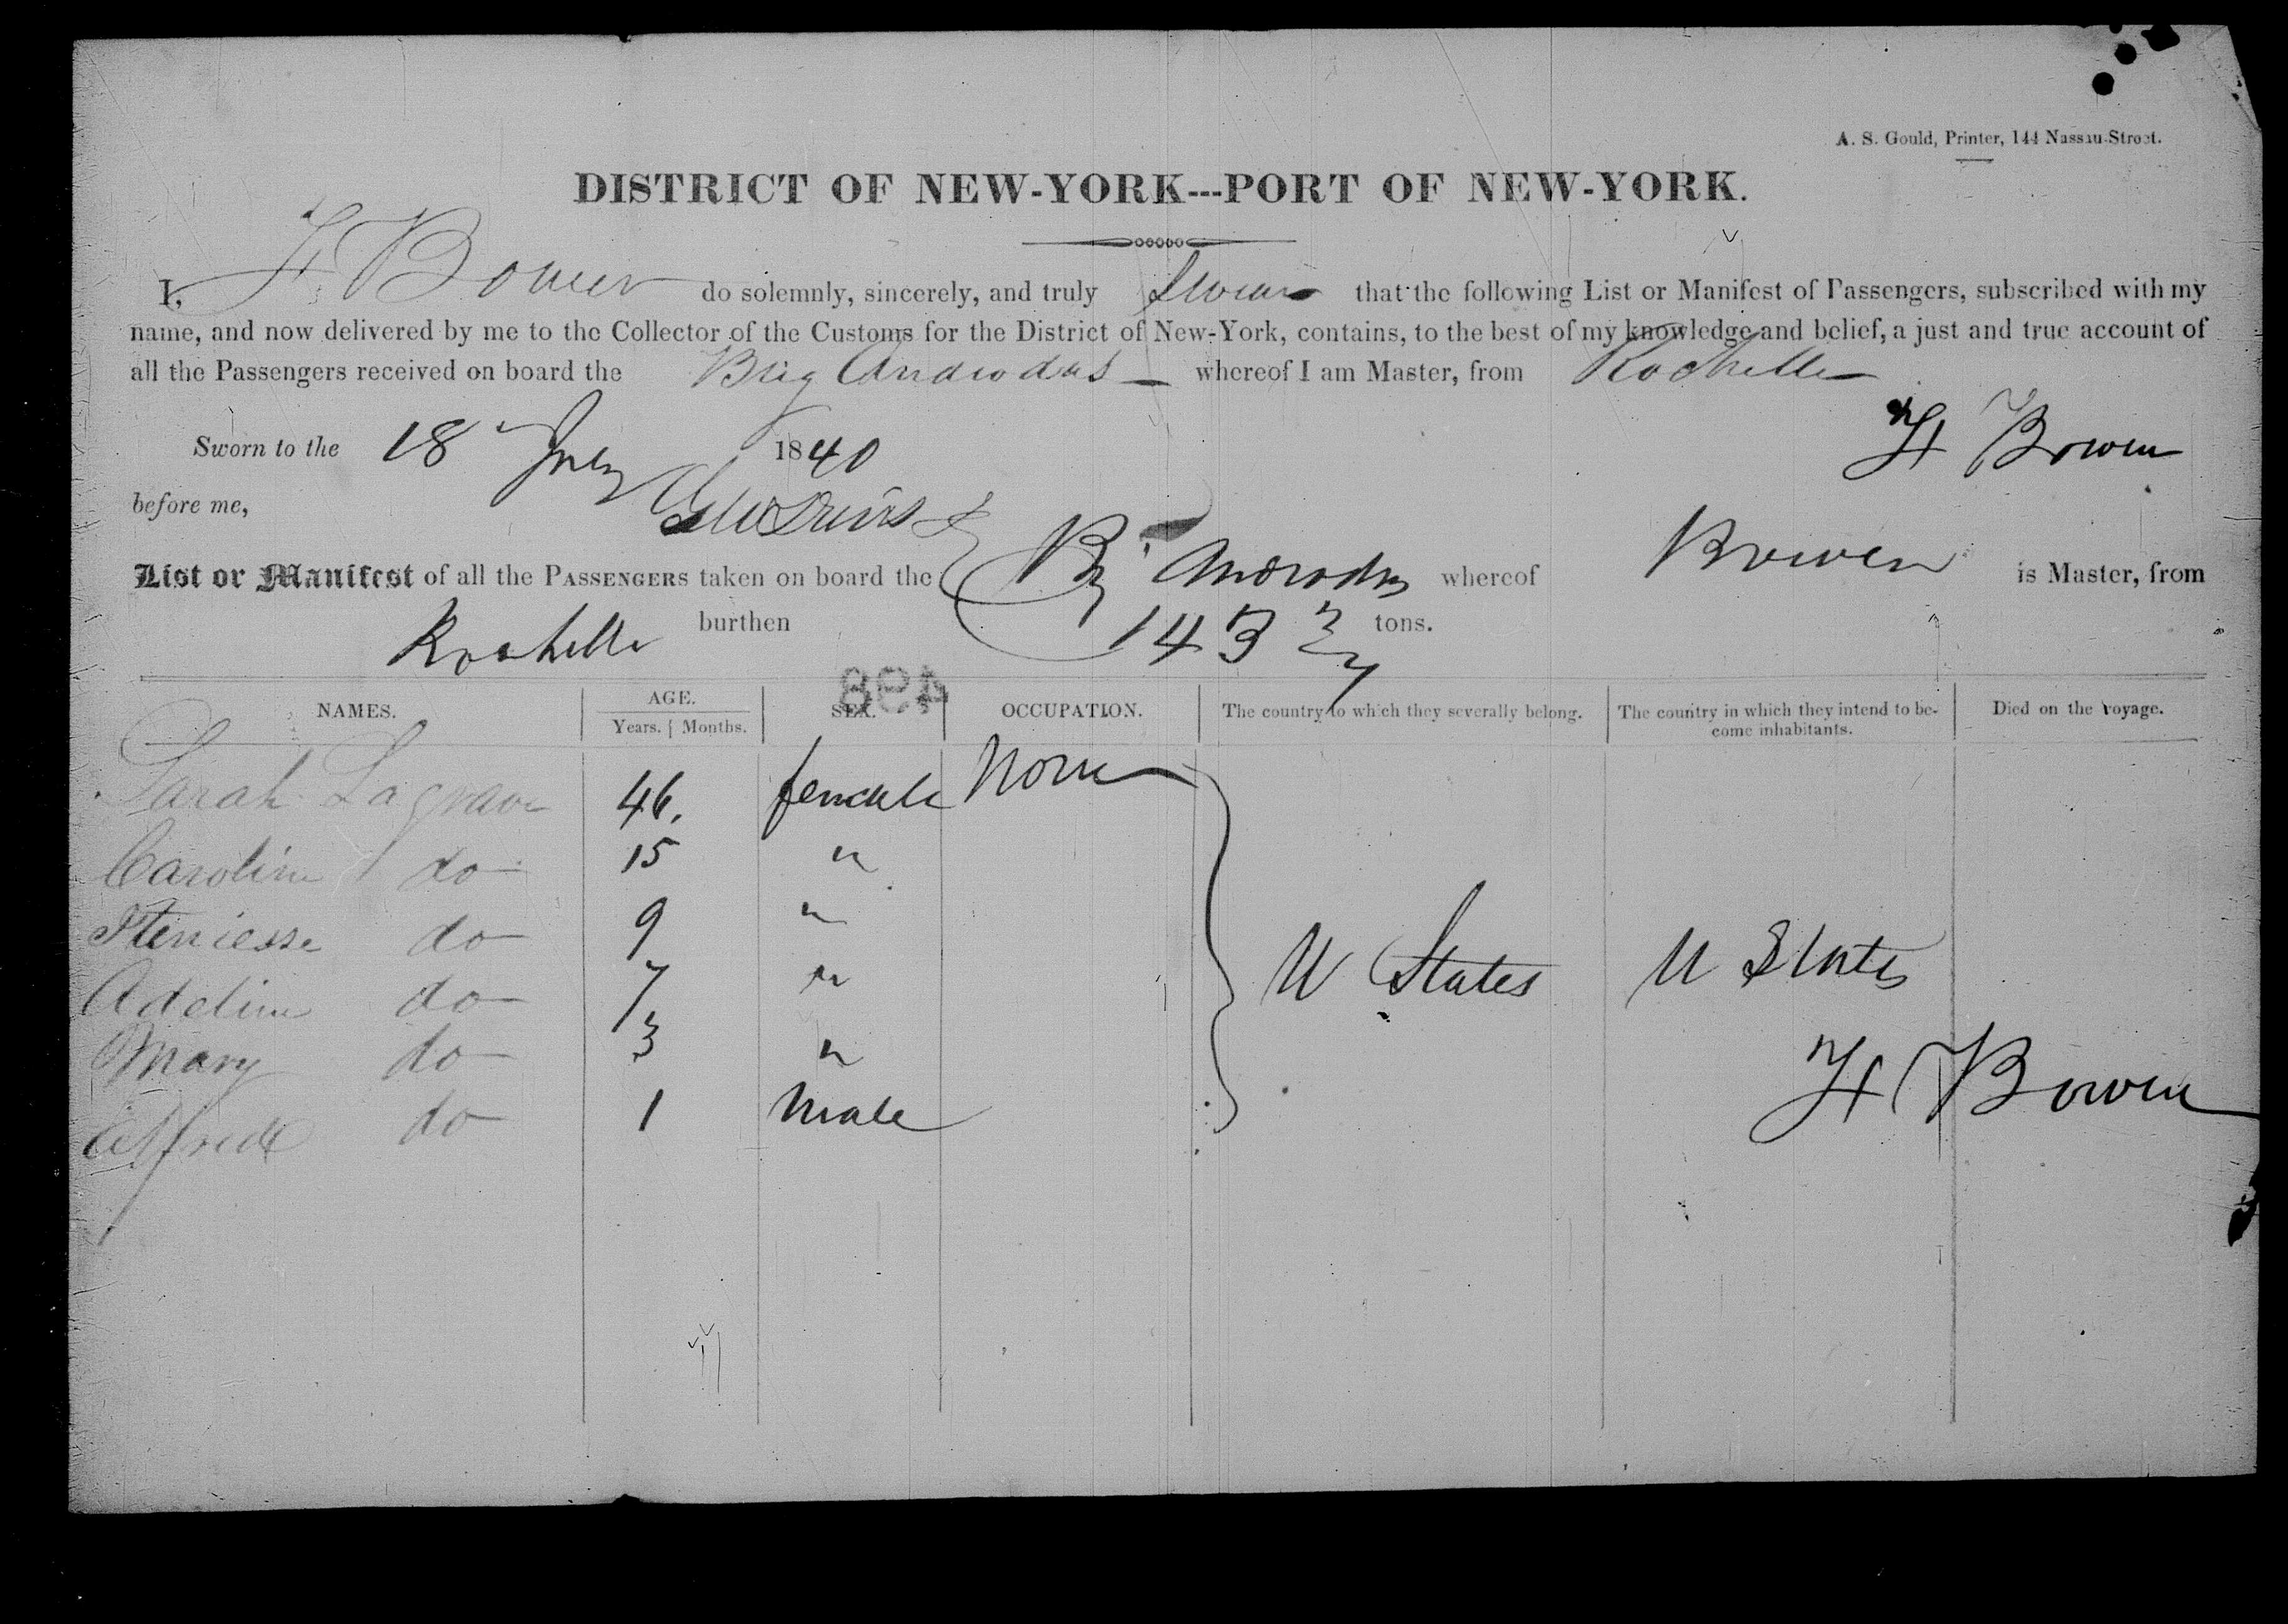 A. S. Gould, Printer, 144 Nassau-Street.
DISTRICT OF NEW-YORK---PORT OF NEW-YORK.
I, H Bowen do solemnly, sincerely, and truly swear that the following List or Manifest of Passengers, subscribed with my
name, and now delivered by me to the Collector of the Customs for the District of New-York, contains, to the best of my knowledge and belief, a just and true account of
all the Passengers received on board the Brig whereof I am Master, from Rochelle
H Bowen
Sworn to the 18 1840
before me,
List or Manifest of all the PASSENGERS taken on board the Br whereof Bowen is Master, from
Rochelle burthen 143 tons.
498
NAMES. AGE. SEX. OCCUPATION. The country to which they severally belong. The country in which they intend to be-
come inhabitants. Died on the voyage.
Years. Months.
Sarah Lagrave 46. female None
Caroline do 15 "
do 9 "
Adeline do 7 "
U States U States
Mary do 3 "
H Bowen
Alfred do 1 Male